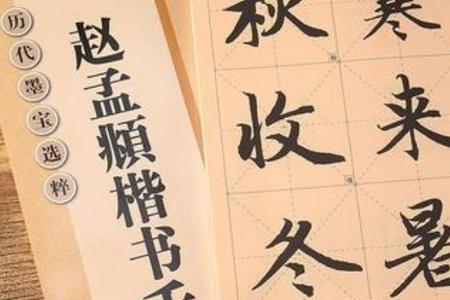 历代墨宝选粹
赵孟頫楷书
寒来暑
秋收冬